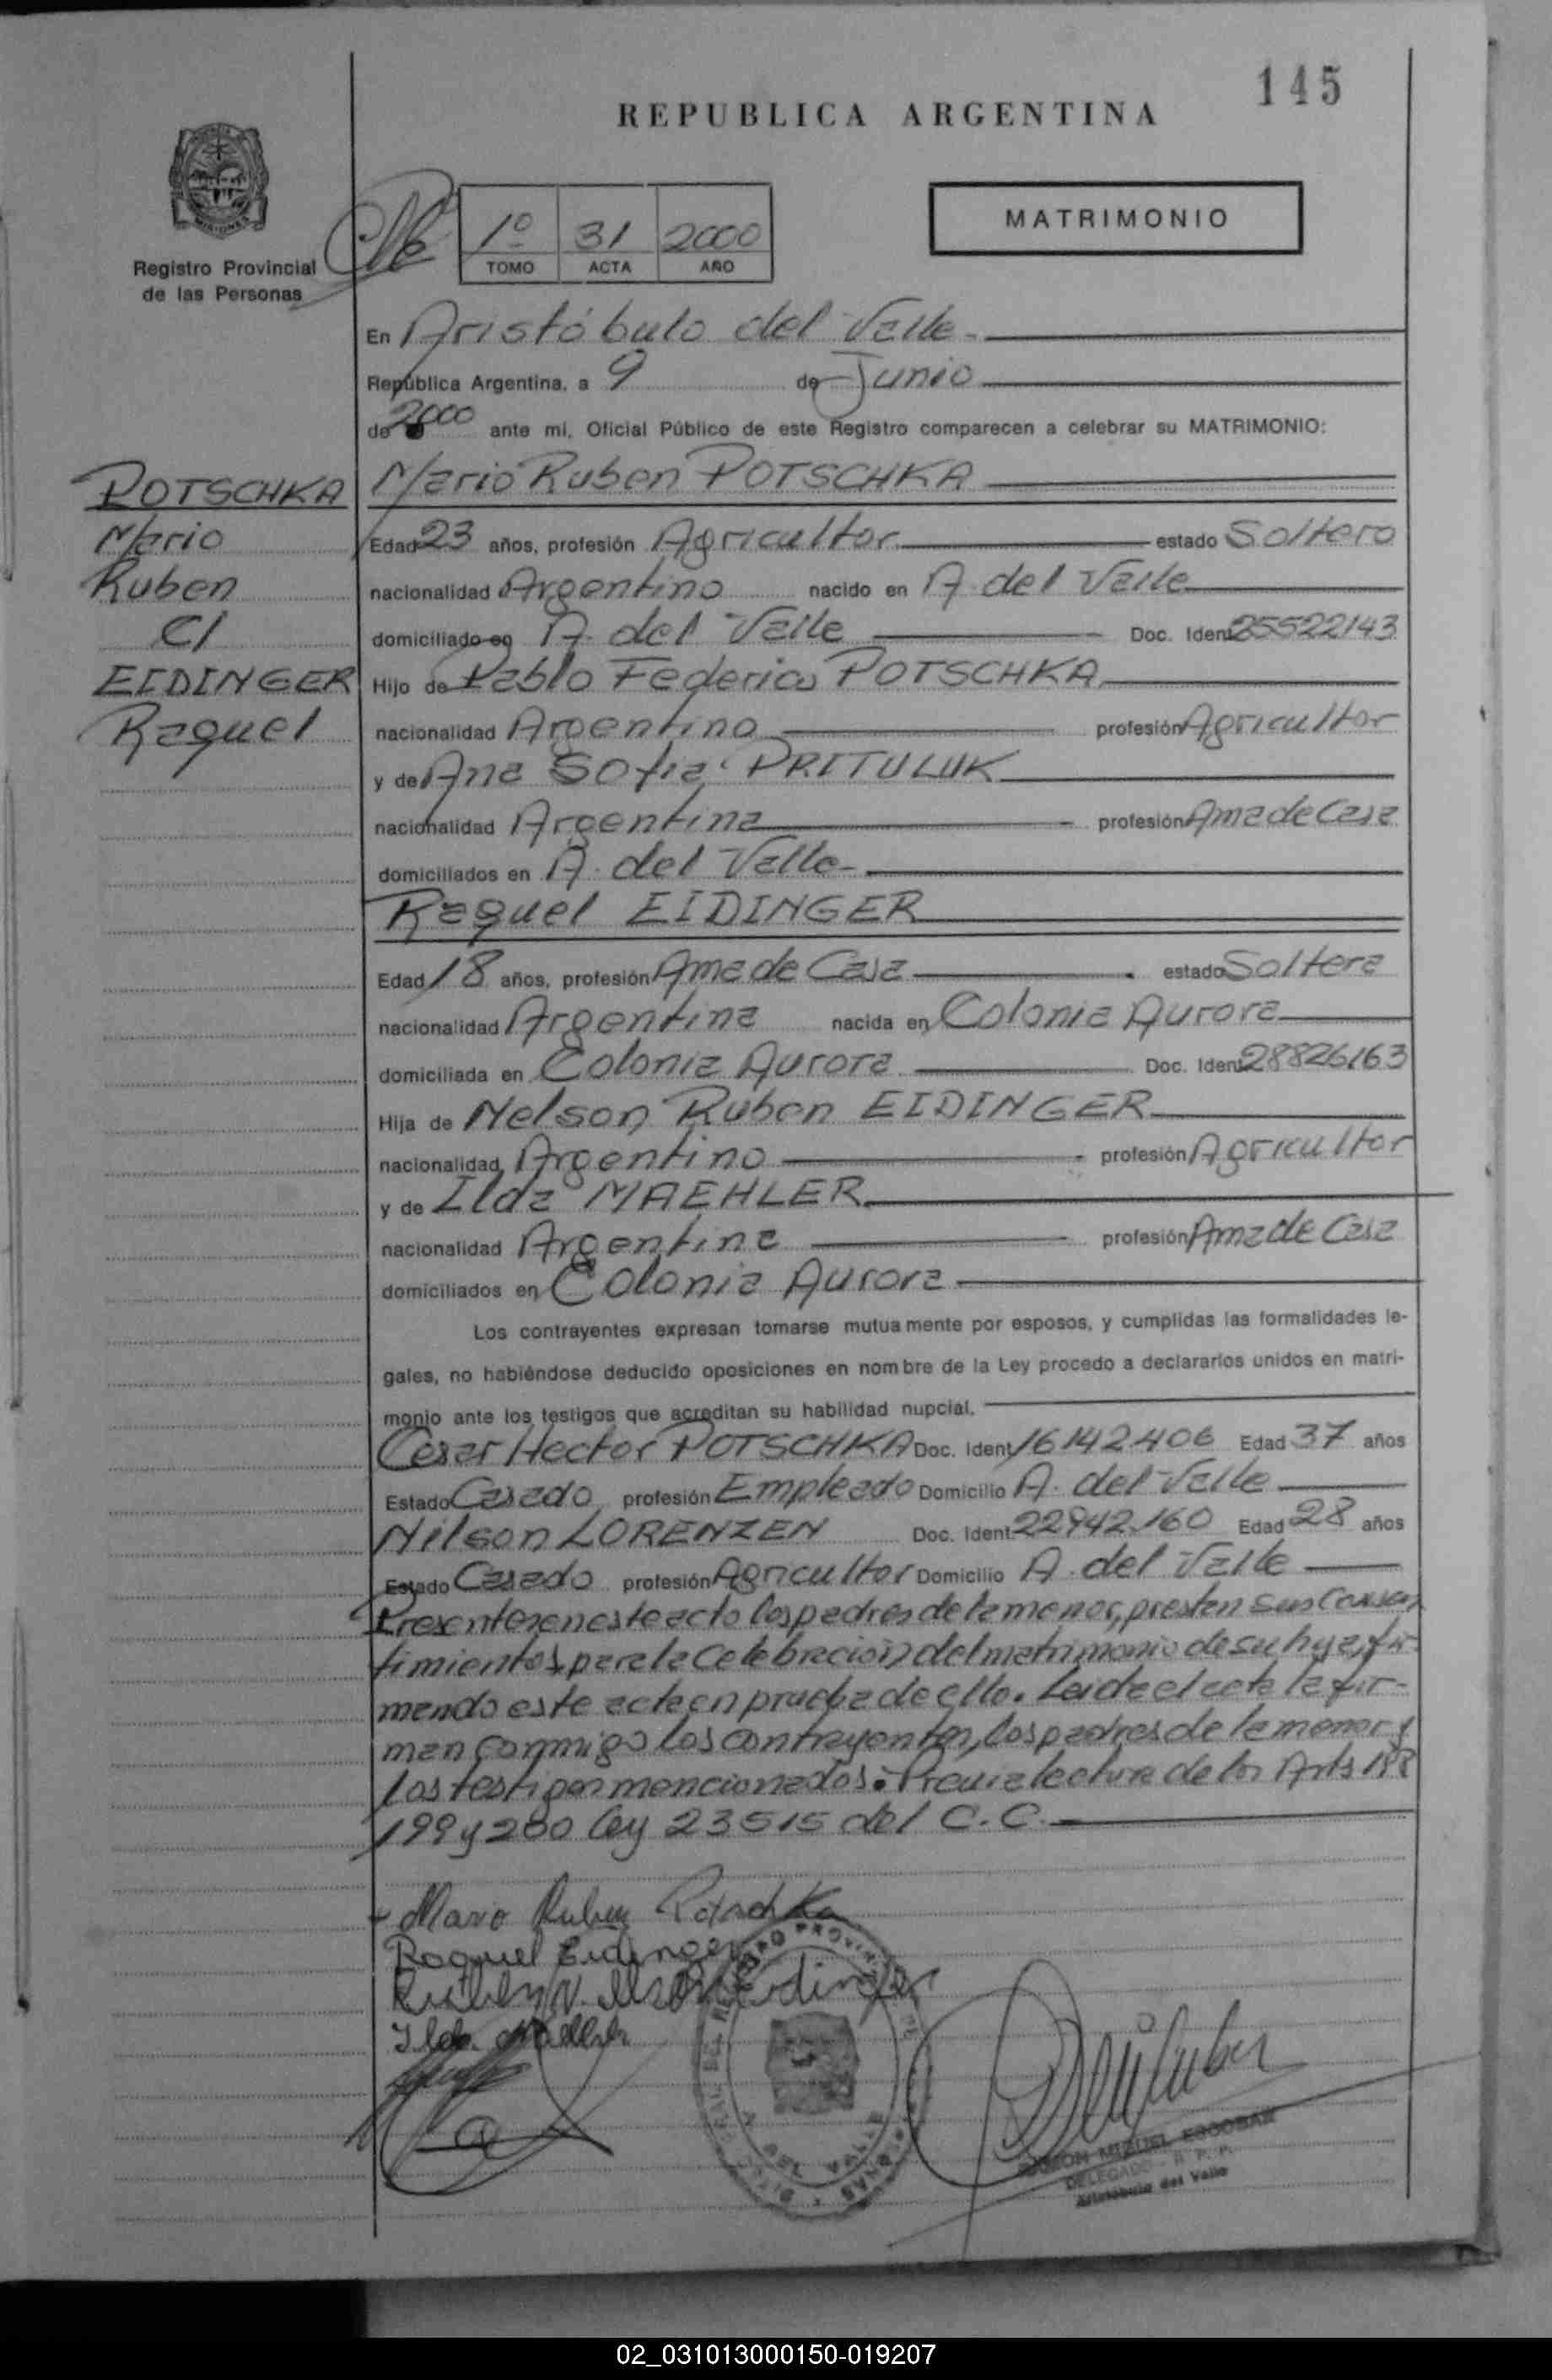 145
REPUBLICA ARGENTINA
MISIONES
Registro Provincial
de las Personas
1º 31 2000
TOMO ACTA AÑO
MATRIMONIO
En Aristóbulo del Valle.-
República Argentina, a 9 de Junio
de 2000 ante mi, Oficial Público de este Registro comparecen a celebrar su MATRIMONIO:
POTSCHKA
Mario
Ruben
C/
EIDINGER
Raquel
Mario Ruben POTSCHKA
Edad 23 años, profesión Agricultor estado Soltero
nacionalidad Argentino nacido en A. del Valle
domiciliado en A. del Valle Doc. Ident 25522143
Hijo de Pablo Federico POTSCHKA
nacionalidad Argentino profesión Agricultor
y de Ana Sofia PRITULUK
nacionalidad Argentina profesión Ama de Casa
domiciliados en A. del Valle-
Raquel EIDINGER
Edad 18 años, profesión Ama de Casa estado Soltera
nacionalidad Argentina nacida en Colonia Aurora
domiciliada en Colonia Aurora Doc. Ident 28826163
Hija de Nelson Ruben EIDINGER
nacionalidad Argentino profesión Agricultor
y de Ilda MAEHLER
nacionalidad Argentina profesión Ama de Casa
domiciliados en Colonia Aurora
Los contrayentes expresan tomarse mutuamente por esposos, y cumplidas las formalidades le-
gales, no habiéndose deducido oposiciones en nombre de la Ley procedo a declararlos unidos en matri-
monio ante los testigos que acreditan su habilidad nupcial.
Cesar Hector POTSCHKA Doc. Ident 16142406 Edad 37 años
Estado Casado profesión Empleado Domicilio A. del Valle
Nilson LORENZEN Doc. Ident 22942.160 Edad 28 años
Estado Casado profesión Agricultor Domicilio A. del Valle
Presentes en este acto los padres de la menor, prestan sus consen
timientos para la celebración del matrimonio de su hija, fir-
mando este acta en prueba de ello. Leida el acta la fir-
man conmigo los contrayentes, los padres de la menor y
los testigos mencionados. Previa lectura de los Arts 198
199 y 200 ley 23515 del C.C.
Mario Ruben Potschka
Raquel Eidinger
Ruben Nelson Eidinger
Ilda
MIGUEL ESCOBAR
DELEGADO - R. P. P.
Aristóbulo del Valle
02_031013000150-019207